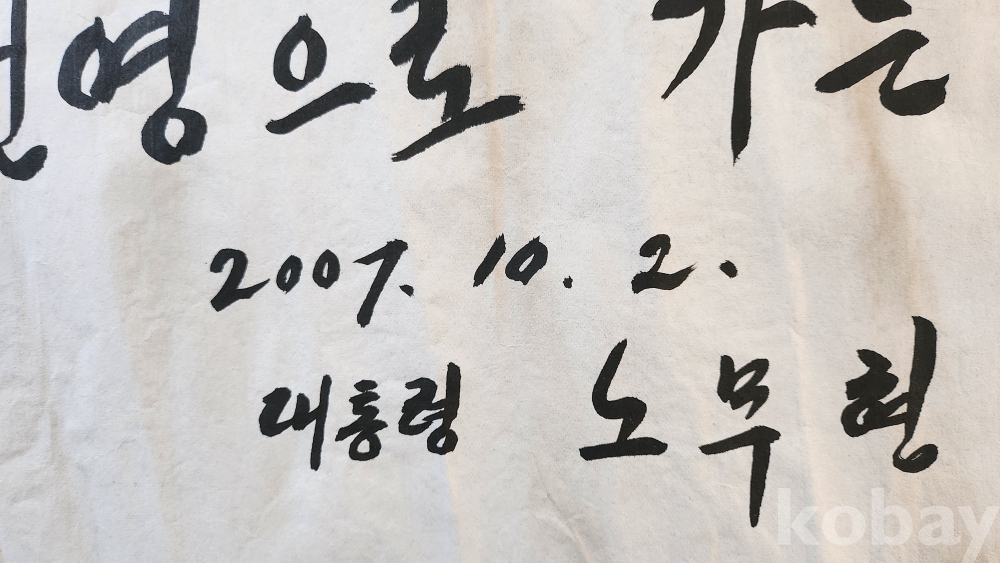 영으로 가는
2007. 10. 2.
대통령 노무현
kobay